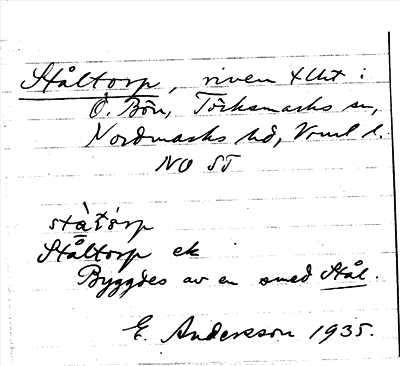 Ståltorp, riven tlht :
Ö. Bön, Törksmarks sn,
Nordmarks hd, Vrml l.
NO ST
stàtórp
Ståltorp ek
Byggdes av en smed Stål.
E. Andersson 1935.